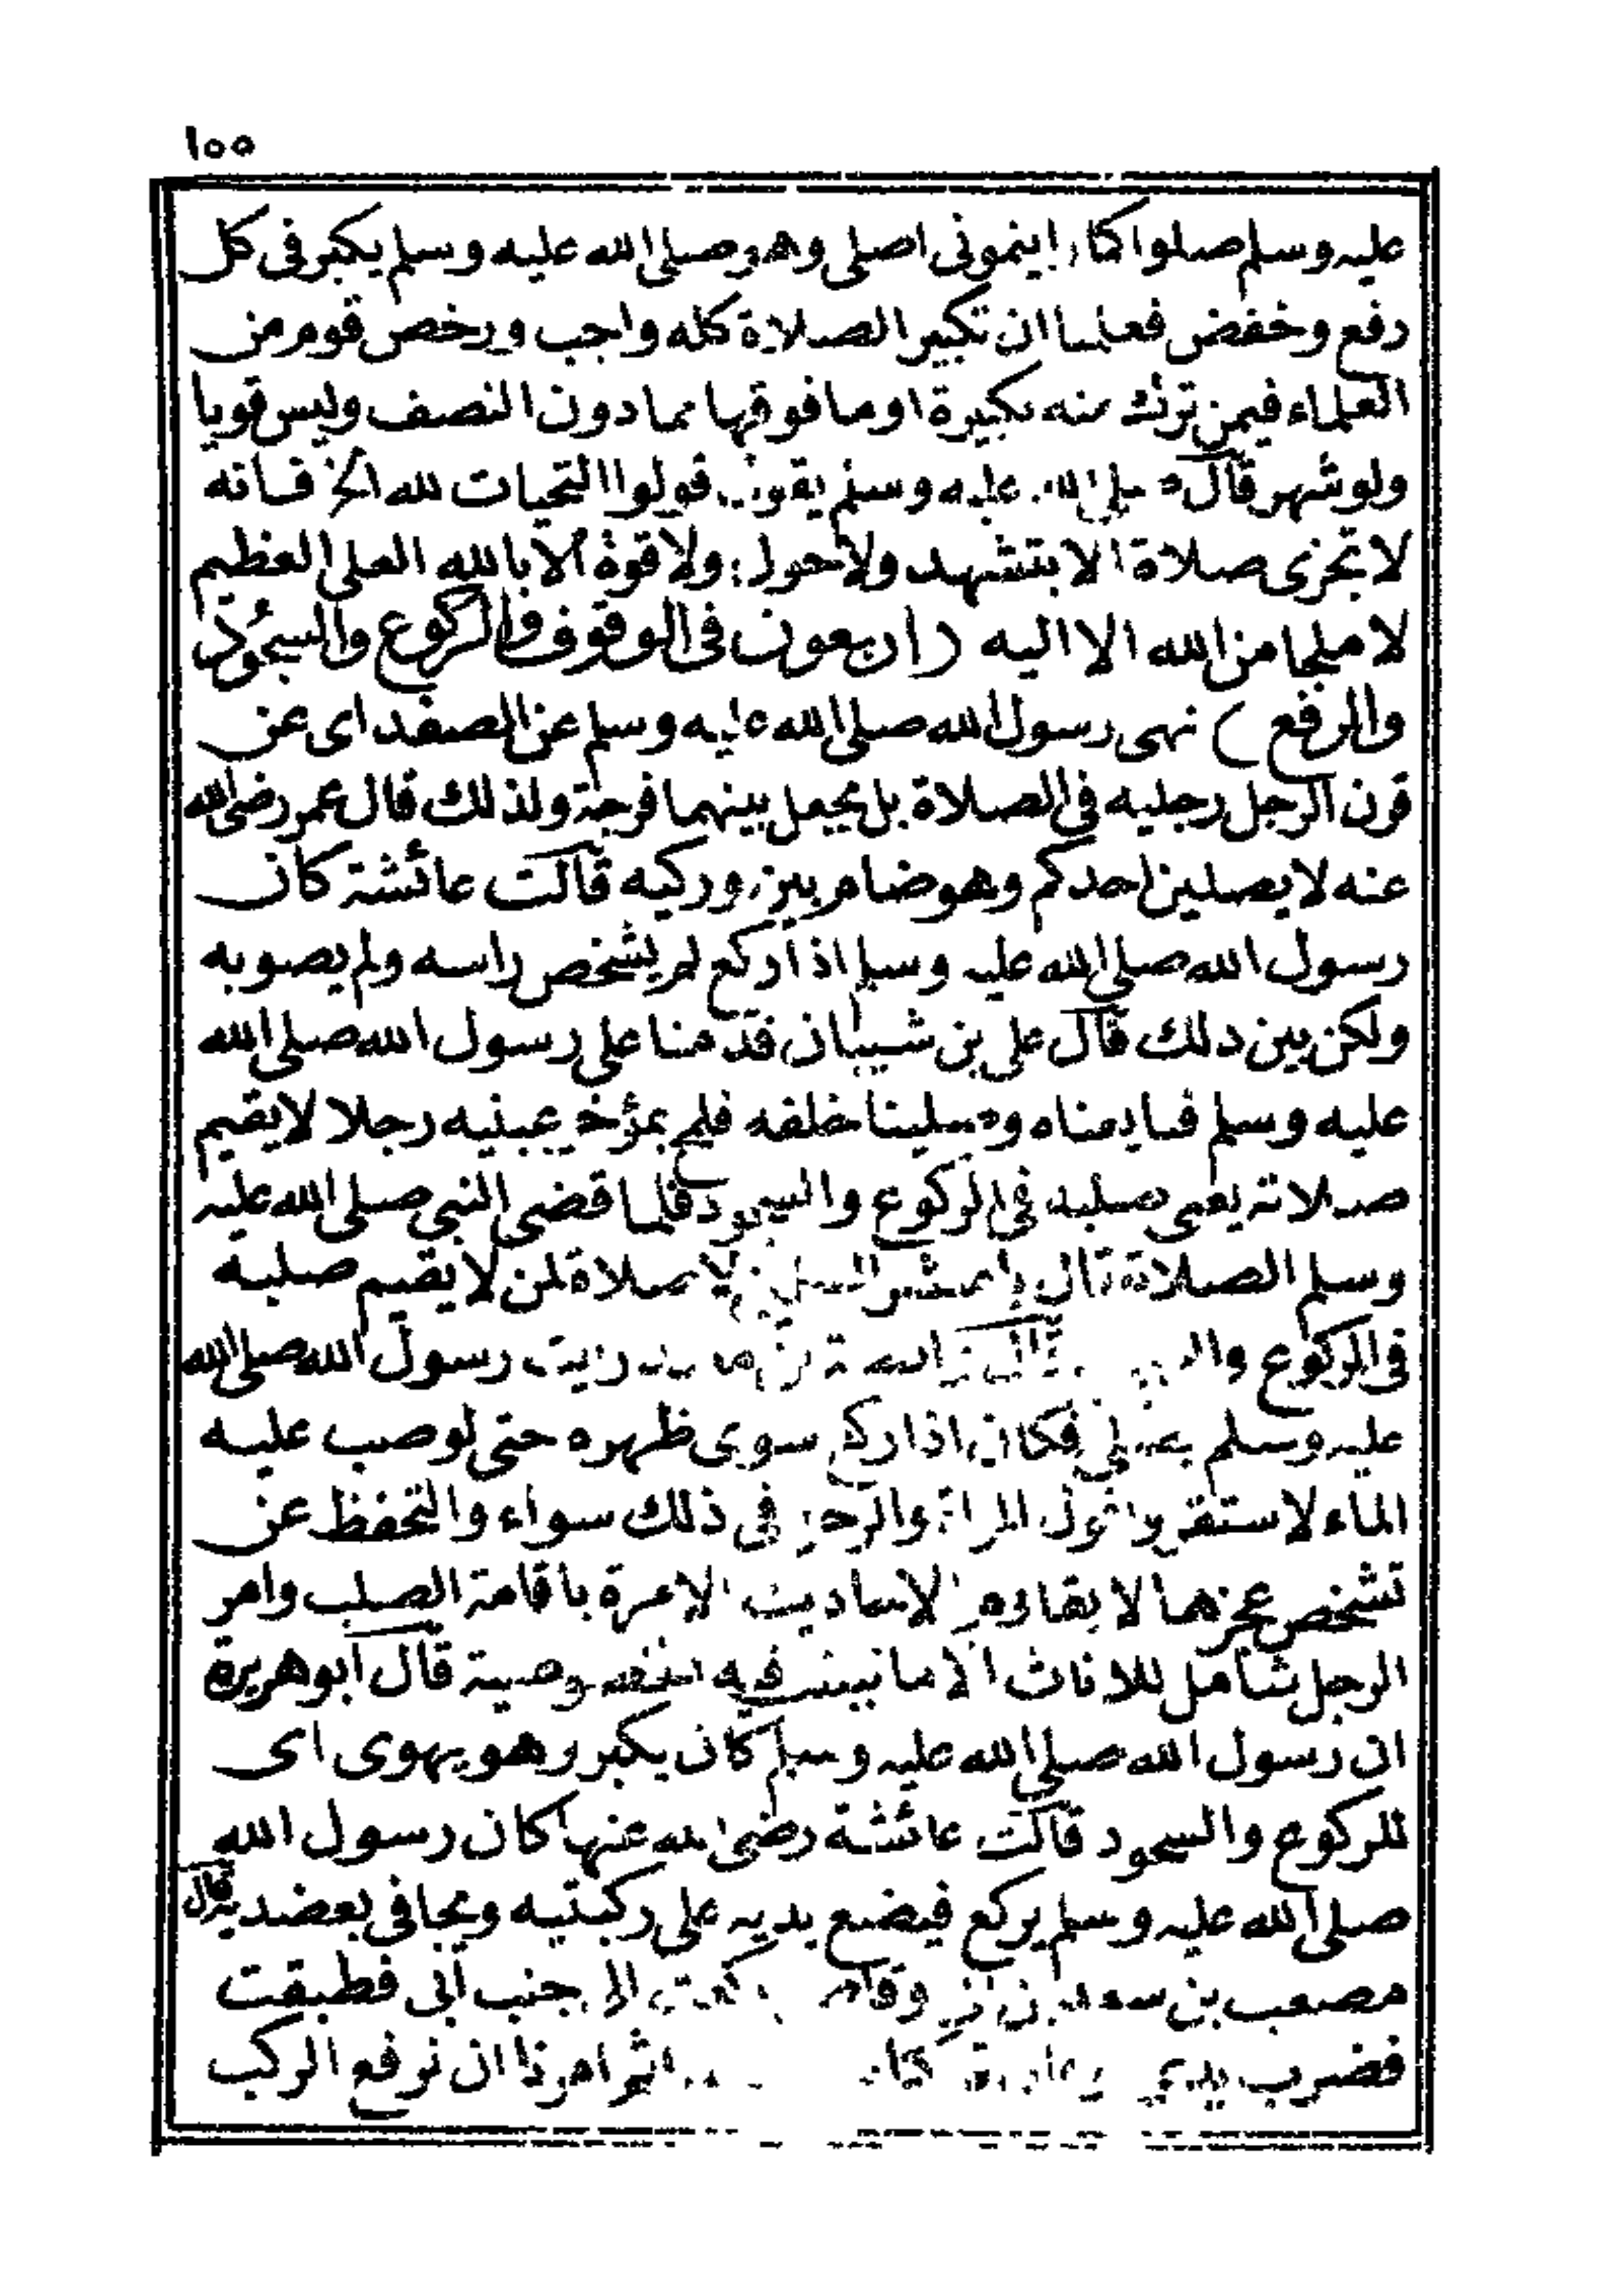 ١٥٥
عليه وسلم صلوا كما رايتمونى اصلى وهو صلى الله عليه وسلم يكبر فى كل
رفع وخفض فعلمنا ان تكبير الصلاة كله واجب ورخص قوم من
العلماء فيمن ترك منه تكبيرة او ما فوقها مما دون النصف وليس قويا
ولو شهر قال صلى الله عليه وسلم يقول قولوا التحيات لله الخ فانه
لا تجزى صلاة الا بتشهد ولا حول ولا قوة الا بالله العلى العظيم
لا ملجا من الله الا اليه (اربعون فى الوقوف والركوع والسجود
والرفع) نهى رسول الله صلى الله عليه وسلم عن الصفد اى عن
قرن الرجل رجليه فى الصلاة بل يجعل بينهما فرجة ولذلك قال عمر رضى الله
عنه لا يصلين احدكم وهو ضام بين وركيه قالت عائشة كان
رسول الله صلى الله عليه وسلم اذا ركع لم يشخص راسه ولم يصوبه
ولكن بين ذلك قال على بن شيبان قدمنا على رسول الله صلى الله
عليه وسلم فبايعناه وصلينا خلفه فلمح بمؤخر عينيه رجلا لا يقيم
صلاته يعنى صلبه فى الركوع والسجود فلما قضى النبى صلى الله عليه
وسلم الصلاة قال يا معشر المسلمين لا صلاة لمن لا يقيم صلبه
فى الركوع قال رسول الله صلى الله
عليه وسلم يصلى فكان اذا ركع سوى ظهره حتى لو صب عليه
الماء لاستقر واقول المراة والرجل فى ذلك سواء والتحفظ عن
تشخص عجزها لا يقاوم الاحاديث الامرة باقامة الصلب وامر
الرجل شامل للاناث الا ما تبينت فيه الخصوصية قال ابو هريرة
ان رسول الله صلى الله عليه وسلم كان يكبر وهو يهوى اى
للركوع والسجود قالت عائشة رضى الله عنها كان رسول الله
صلى الله عليه وسلم يركع فيضع يديه على ركبتيه ويجافى بعضديه قال
مصعب بن سعد بن الى جنب ابى فطبقت
فضرب يدى امرنا ان نرفع الركب